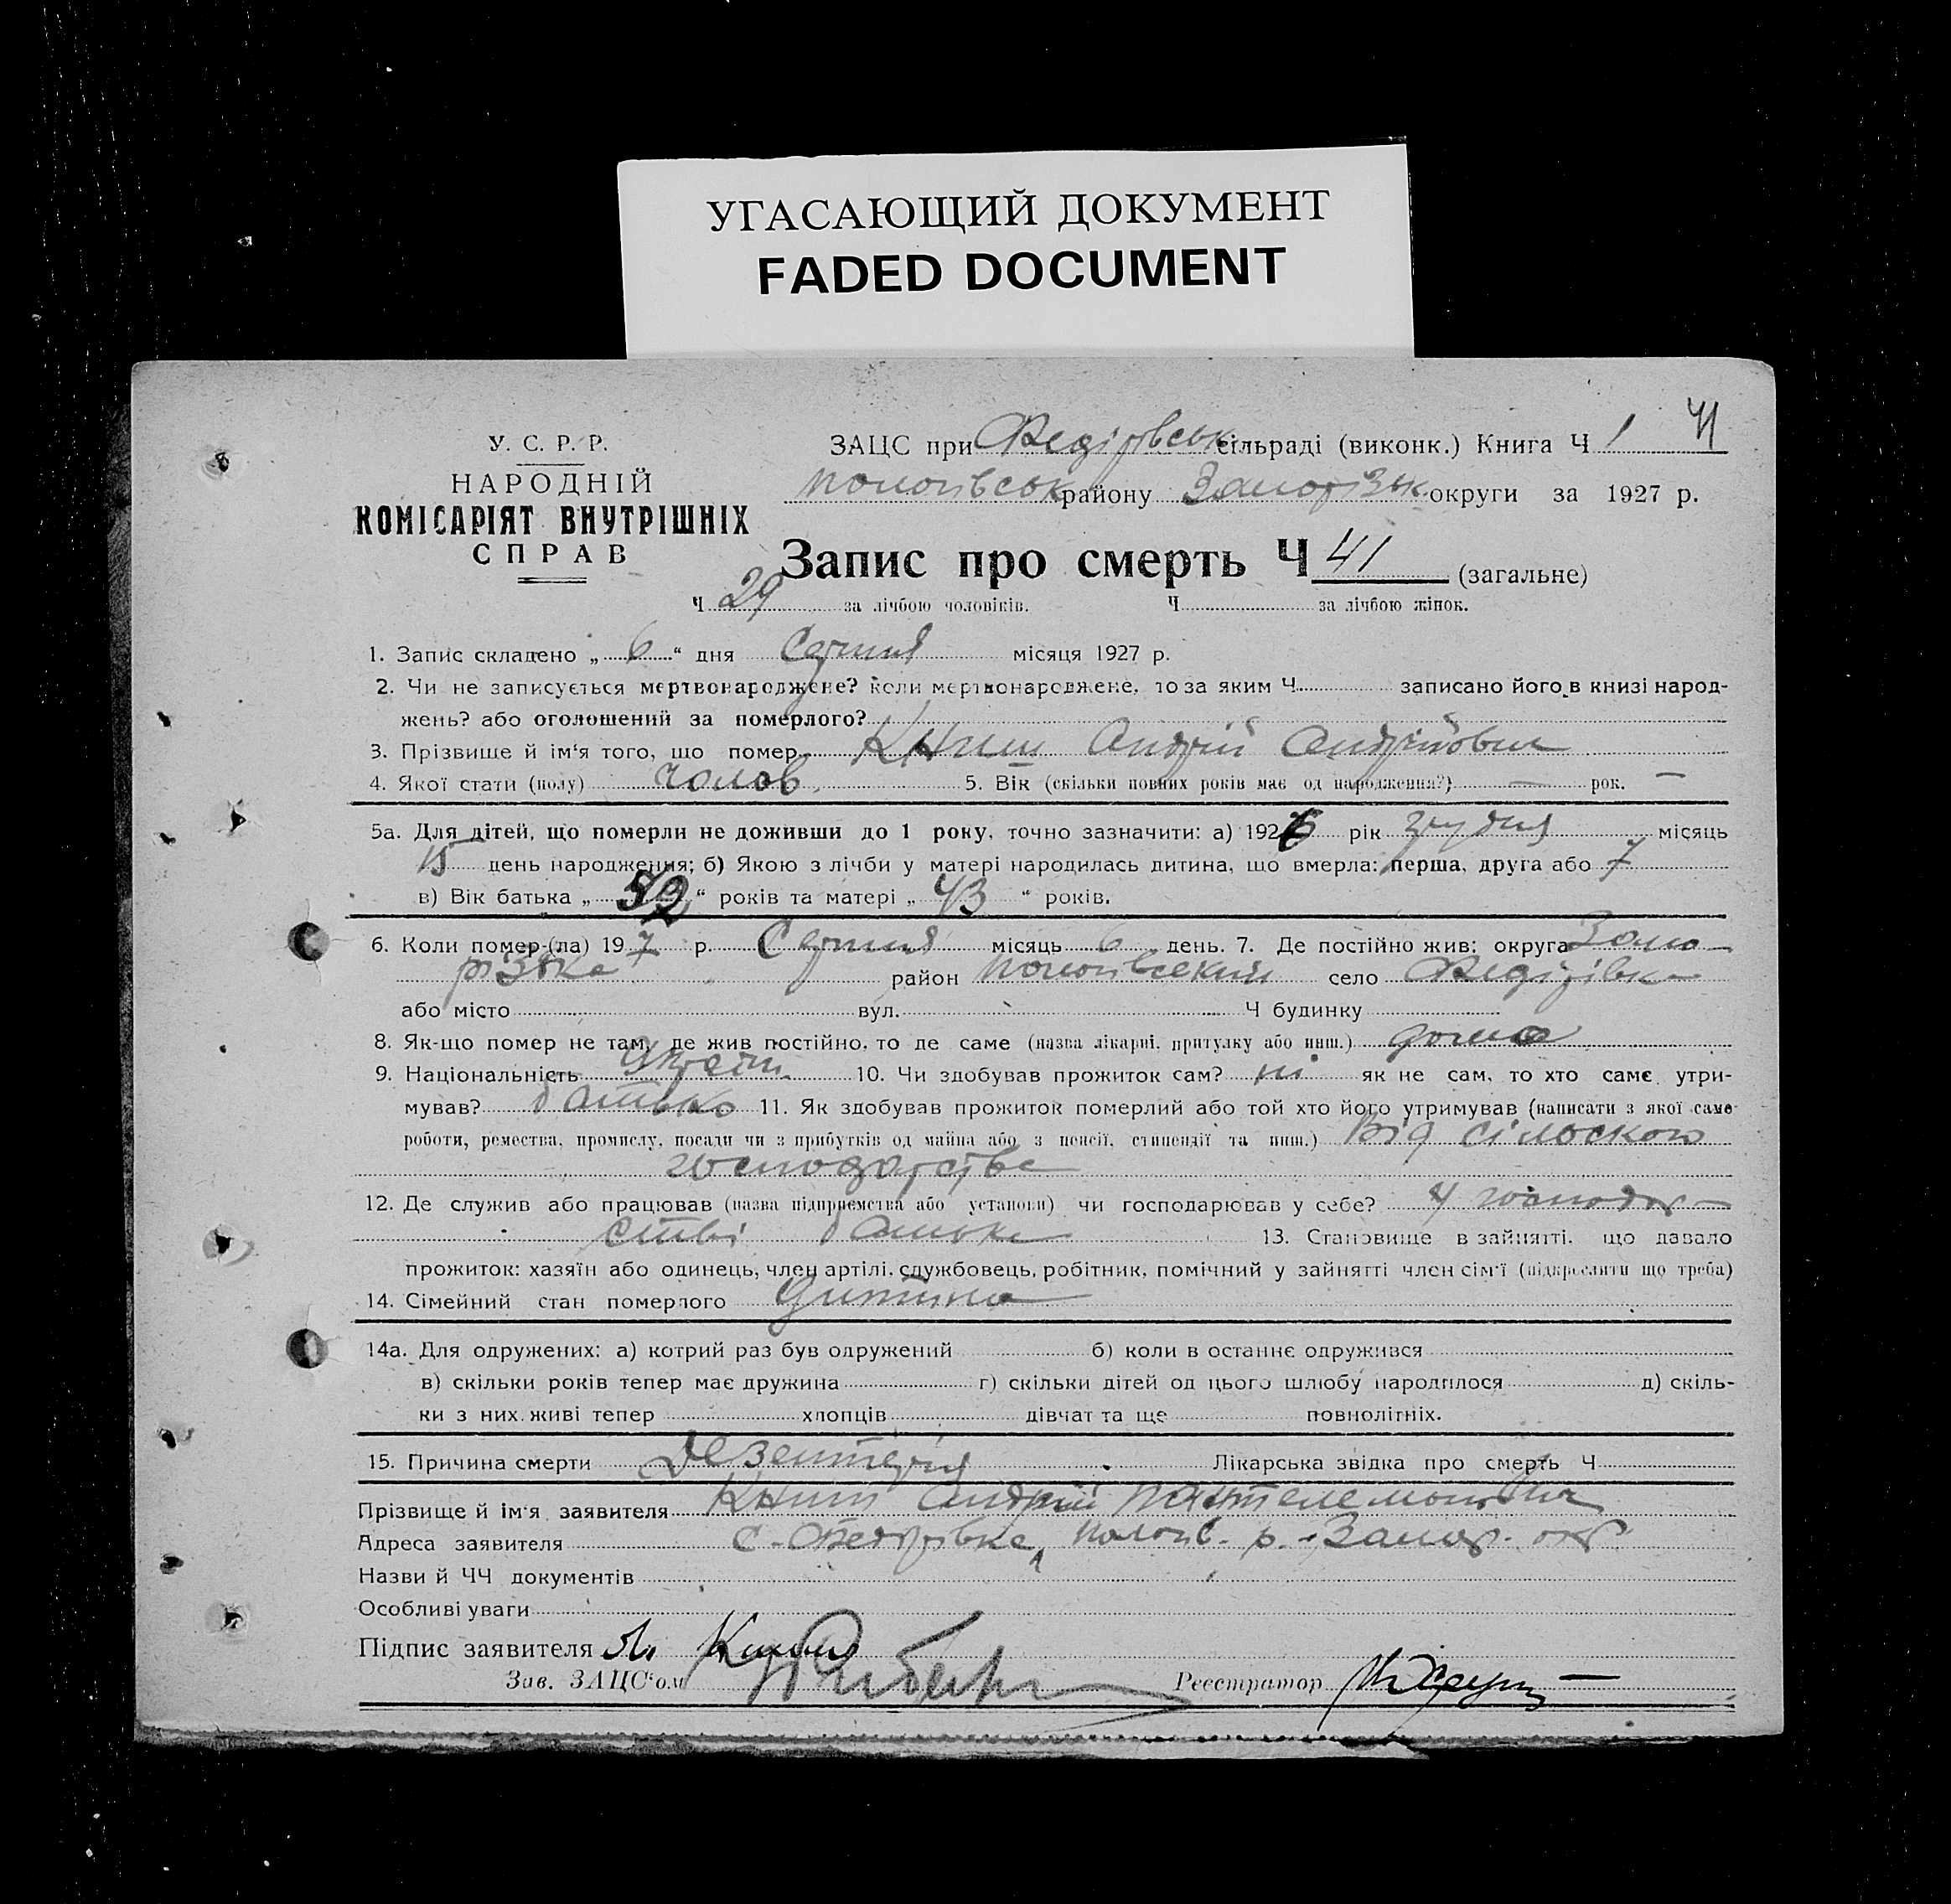 УГАСАЮЩИЙ ДОКУМЕНТ
FADED DOCUMENT
У. С. Р. Р.
НАРОДНІЙ
КОМІСАРІЯТ ВНУТРІШНІХ
СПРАВ
ЗАЦС при Федірівськ сільраді (виконк.) Книга Ч 1 41
Пологівськ району Запорізьк округи за 1927 р.
Запис про смерть Ч 41 (загальне)
Ч 29 за лічбою чоловіків. Ч за лічбою жінок.
1. Запис складено „ 6 “ дня Серпня місяця 1927 р.
2. Чи не записується мертвонароджене? коли мертвонароджене, то за яким Ч записано його в книзі народ-
жень? або оголошений за померлого?
3. Прізвище й ім‘я того, що помер Книш Андрій Андрійович
4. Якої стати (полу) Чолов. 5. Вік (скільки повних років має од народження?) — рок. —
5а. Для дітей, що померли не доживши до 1 року, точно зазначити: а) 1926 рік грудня місяць
15 день народження; б) Якою з лічби у матері народилась дитина, що вмерла: перша, друга або 7
в) Вік батька „ “ років та матері „ 43 “ років.
6. Коли помер-(ла) 19 7 р. Серпня місяць 6 день. 7. Де постійно жив: округа Запо-
різька район Пологівський село Федірівка
або місто вул. Ч будинку
8. Як-що помер не там, де жив постійно, то де саме (назва лікарні, притулку або инш.) дома
9. Національність Україн 10. Чи здобував прожиток сам? ні як не сам, то хто саме утри-
мував? батько 11. Як здобував прожиток померлий або той хто його утримував (написати з якої саме
роботи, ремества, промислу, посади чи з прибутків од майна або з пенсії, стипендії та инш.) Від сільского
господарства
12. Де служив або працював (назва підприємства або установи) чи господарював у себе? У господар-
стві батька 13. Становище в зайнятті, що давало
прожиток: хазяїн або одинець, член артілі, службовець, робітник, помічний у зайнятті член сім‘ї (підкреслити що треба)
14. Сімейний стан померлого Дитина
14а. Для одружених: а) котрий раз був одружений б) коли в останнє одружився
в) скільки років тепер має дружина г) скільки дітей од цього шлюбу народилося д) скіль-
ки з них живі тепер хлопців дівчат та ще повнолітніх.
15. Причина смерти Дезентерія Лікарська звідка про смерть Ч
Прізвище й ім‘я заявителя Книш Андрій Пантелемонович
Адреса заявителя с. Федорівка, Пологів. р. Запор. окр.
Назви й ЧЧ документів
Особливі уваги
Підпис заявителя Книш
Зав. ЗАЦС‘ом Реєстратор